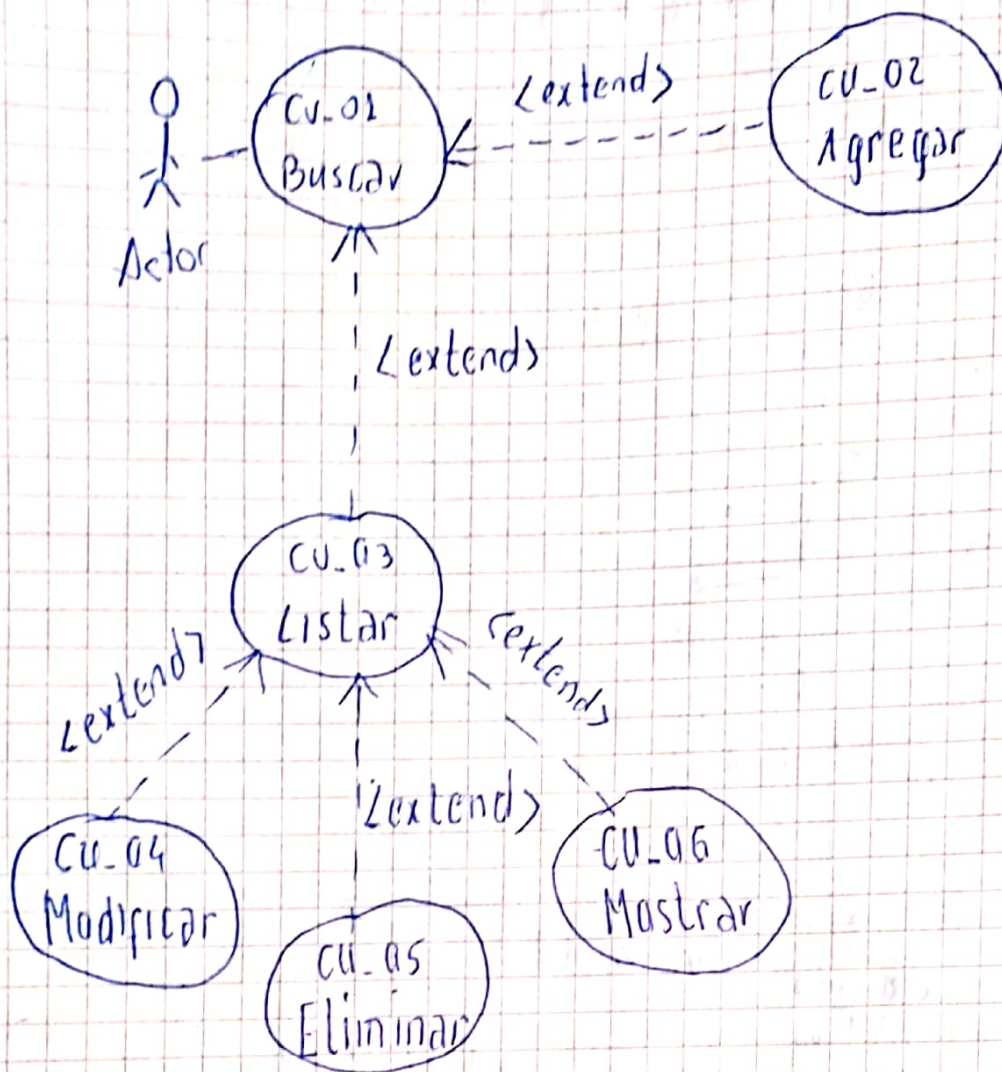 CU_01
Buscar
<extend>
CU_02
Agregar
Actor
<extend>
CU_03
Listar
<extend>
<extend>
<extend>
CU_04
Modificar
CU_05
Eliminar
CU_06
Mostrar